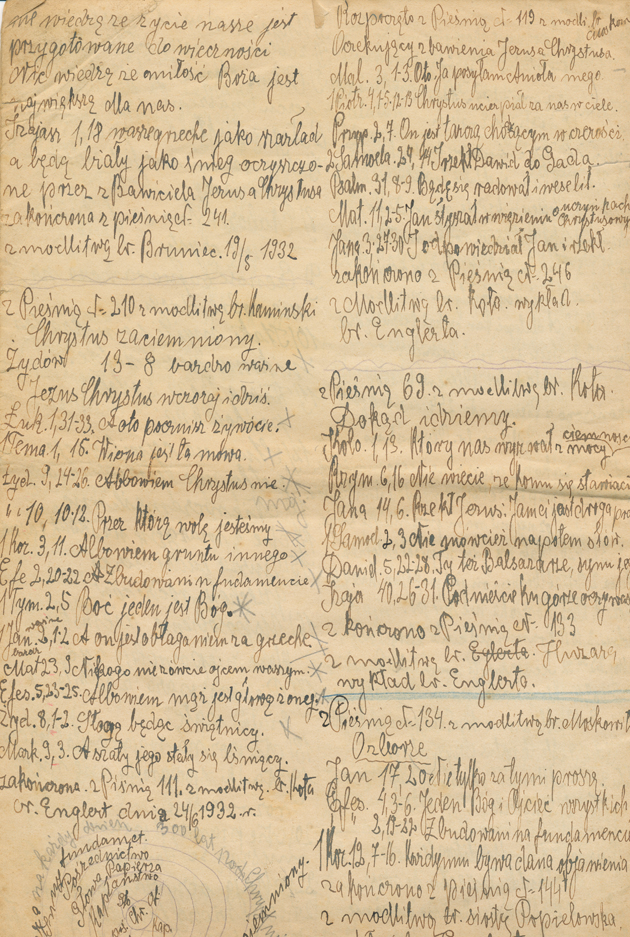 nie wiedzą że życie nasze jest
przygotowane do wieczności
Nie wiedzą że miłość Boża jest
największą dla nas.
Izajasz 1,18 wasze grzechy jako szarład
a będą biały jako śnieg oczyszczo-
ne przez zBawiciela Jezusa Chrystusa
zakończona z pieśnią N- 241.
z modlitwą br. Bruniec. 19/5 1932
z Pieśnią N- 210 z modlitwą br. Kaminski
Chrystus zaciemniony.
Żydów 13-8 bardzo ważne
Jezus Chrystus wczoraj i dziś.
Łuk. 1,31-33. A oto poczniesz żywocie.
1 Tema 1, 15. Wierna jest ta mowa.
Żyd. 9, 24-26. Abbowiem Chrystus nie
" " 10, 10-12. Przez którą wolę jesteśmy
1 Kor. 3, 11. Albowiem gruntu innego
Efe 2,20-22 A Zbudowani na fundamencie
1 Tym. 2,5 Boć jeden jest Bóg.
1 Jan. 2,1-2 A on jest obłaganiem za grzechy
Mat 23, 9 Nikogo nie zowcie ojcem waszym.
Efes. 5,23-25. Albowiem mąż jest głową żoney.
Żyd. 8,1-2. Sługą będąc świątnicy.
Mark. 9, 3. A szaty jego stały się lśniący.
zakończona z Pieśnią 111. z modlitwą br. Koła
br. Englert dnia 24/6 1932. r.
na każdy dzień
300 lat
fundament.
Pośrednictwo
Głowa Papieża
Kapłaństwo
Rozpoczęto z Pieśnią N- 119 z modli.
Oczekujący zbawienia Jezusa Chrystusa.
Mal. 3, 1-3. Oto Ja posyłam Anioła mego
1 Piotr. 4,1-5. 12-13 Chrystus ucierpiał za nas w ciele.
Przyp. 2, 7. On jest tarczą chodzącym w szczerości.
2 Samuela. 24, 14 I rzekł Dawid do Gada.
Psalm. 31, 8-9. Będę się radował i weselił.
Mat. 11, 2-5. Jan słyszał w więzieniu o uczynkach Chrystusowych
Jana 3. 27-30 I odpowiedział Jan i rzekł.
zakończono z Pieśnią N- 246
z Modlitwą br. Koła. wykład.
br. Englerta.
z Pieśnią 69. z modlitwą br. Koła.
Dokąd idziemy.
Kolo. 1,13. Który nas wyrwał z mocy ciemności
Rzym. 6,16 Nie wiecie, że komu się stawiacie
Jana 14, 6. Rzekł Jezus: Jam ci jest droga
1 Samuel. 2, 3 Nie mówcież
Daniel. 5, 22-28. Ty też Balsazarze, synu jego
Izaja 40, 26-31. Podnieście ku górze oczy wasze
zkończono z Pieśnią N- 133
z modlitwą br. Huzara,
wykład br. Englerta.
z Pieśnią N- 134. z modlitwą br. Moskowit
Ozborze
Jan 17 20 Nie tylko za tymi proszę
Efes. 4,3-6. Jeden Bóg i Ojciec wszystkich
" " 2,19-22 Zbudowani na fundamencie
1 Kor. 12, 7-16. każdymu bywa dana objawienia
zakończono z pieśnią N- 144
z modlitwą br. siostry Popielowska.